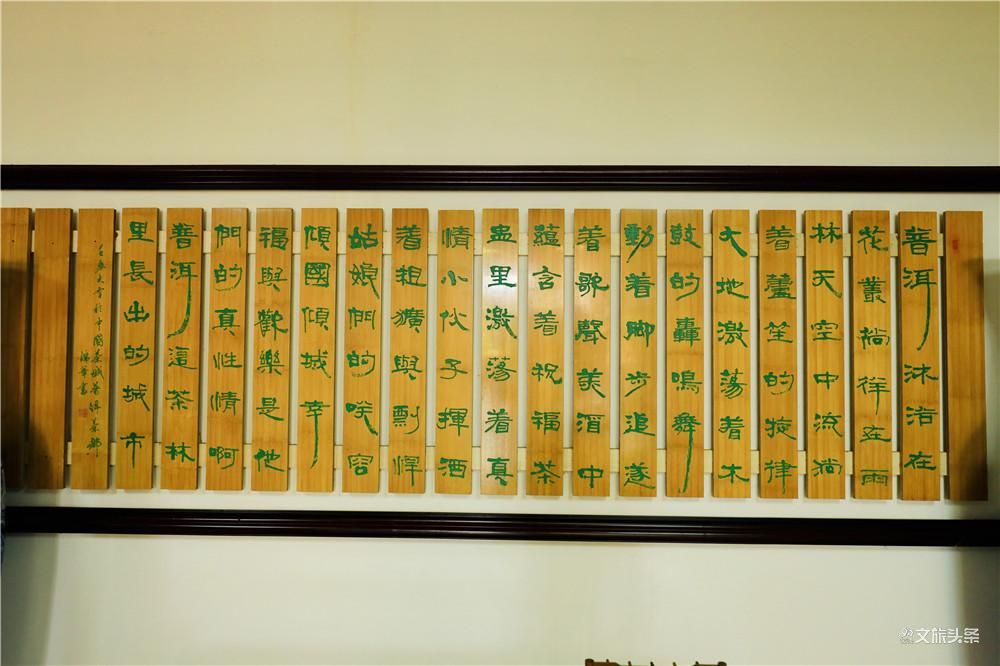 普洱沐浴在
花叢徜徉在雨
林天空中流淌
着蘆笙的旋律
大地激蕩着木
鼓的轟鳴舞
動着脚步追逐
着歌聲美酒中
蘊含着祝福茶
盅里激荡着真
情小伙子揮洒
着粗獷與剽悍
姑娘們的咲容
傾國傾城幸
福與歡樂是他
們的真性情啊
普洱這茶林
里長出的城市
於中國茶城普洱
書
文旅头条